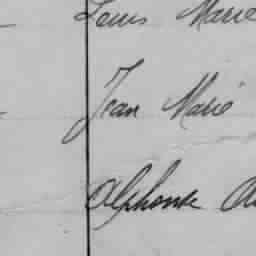 Louis Marie
Jean Marie
Alphonse